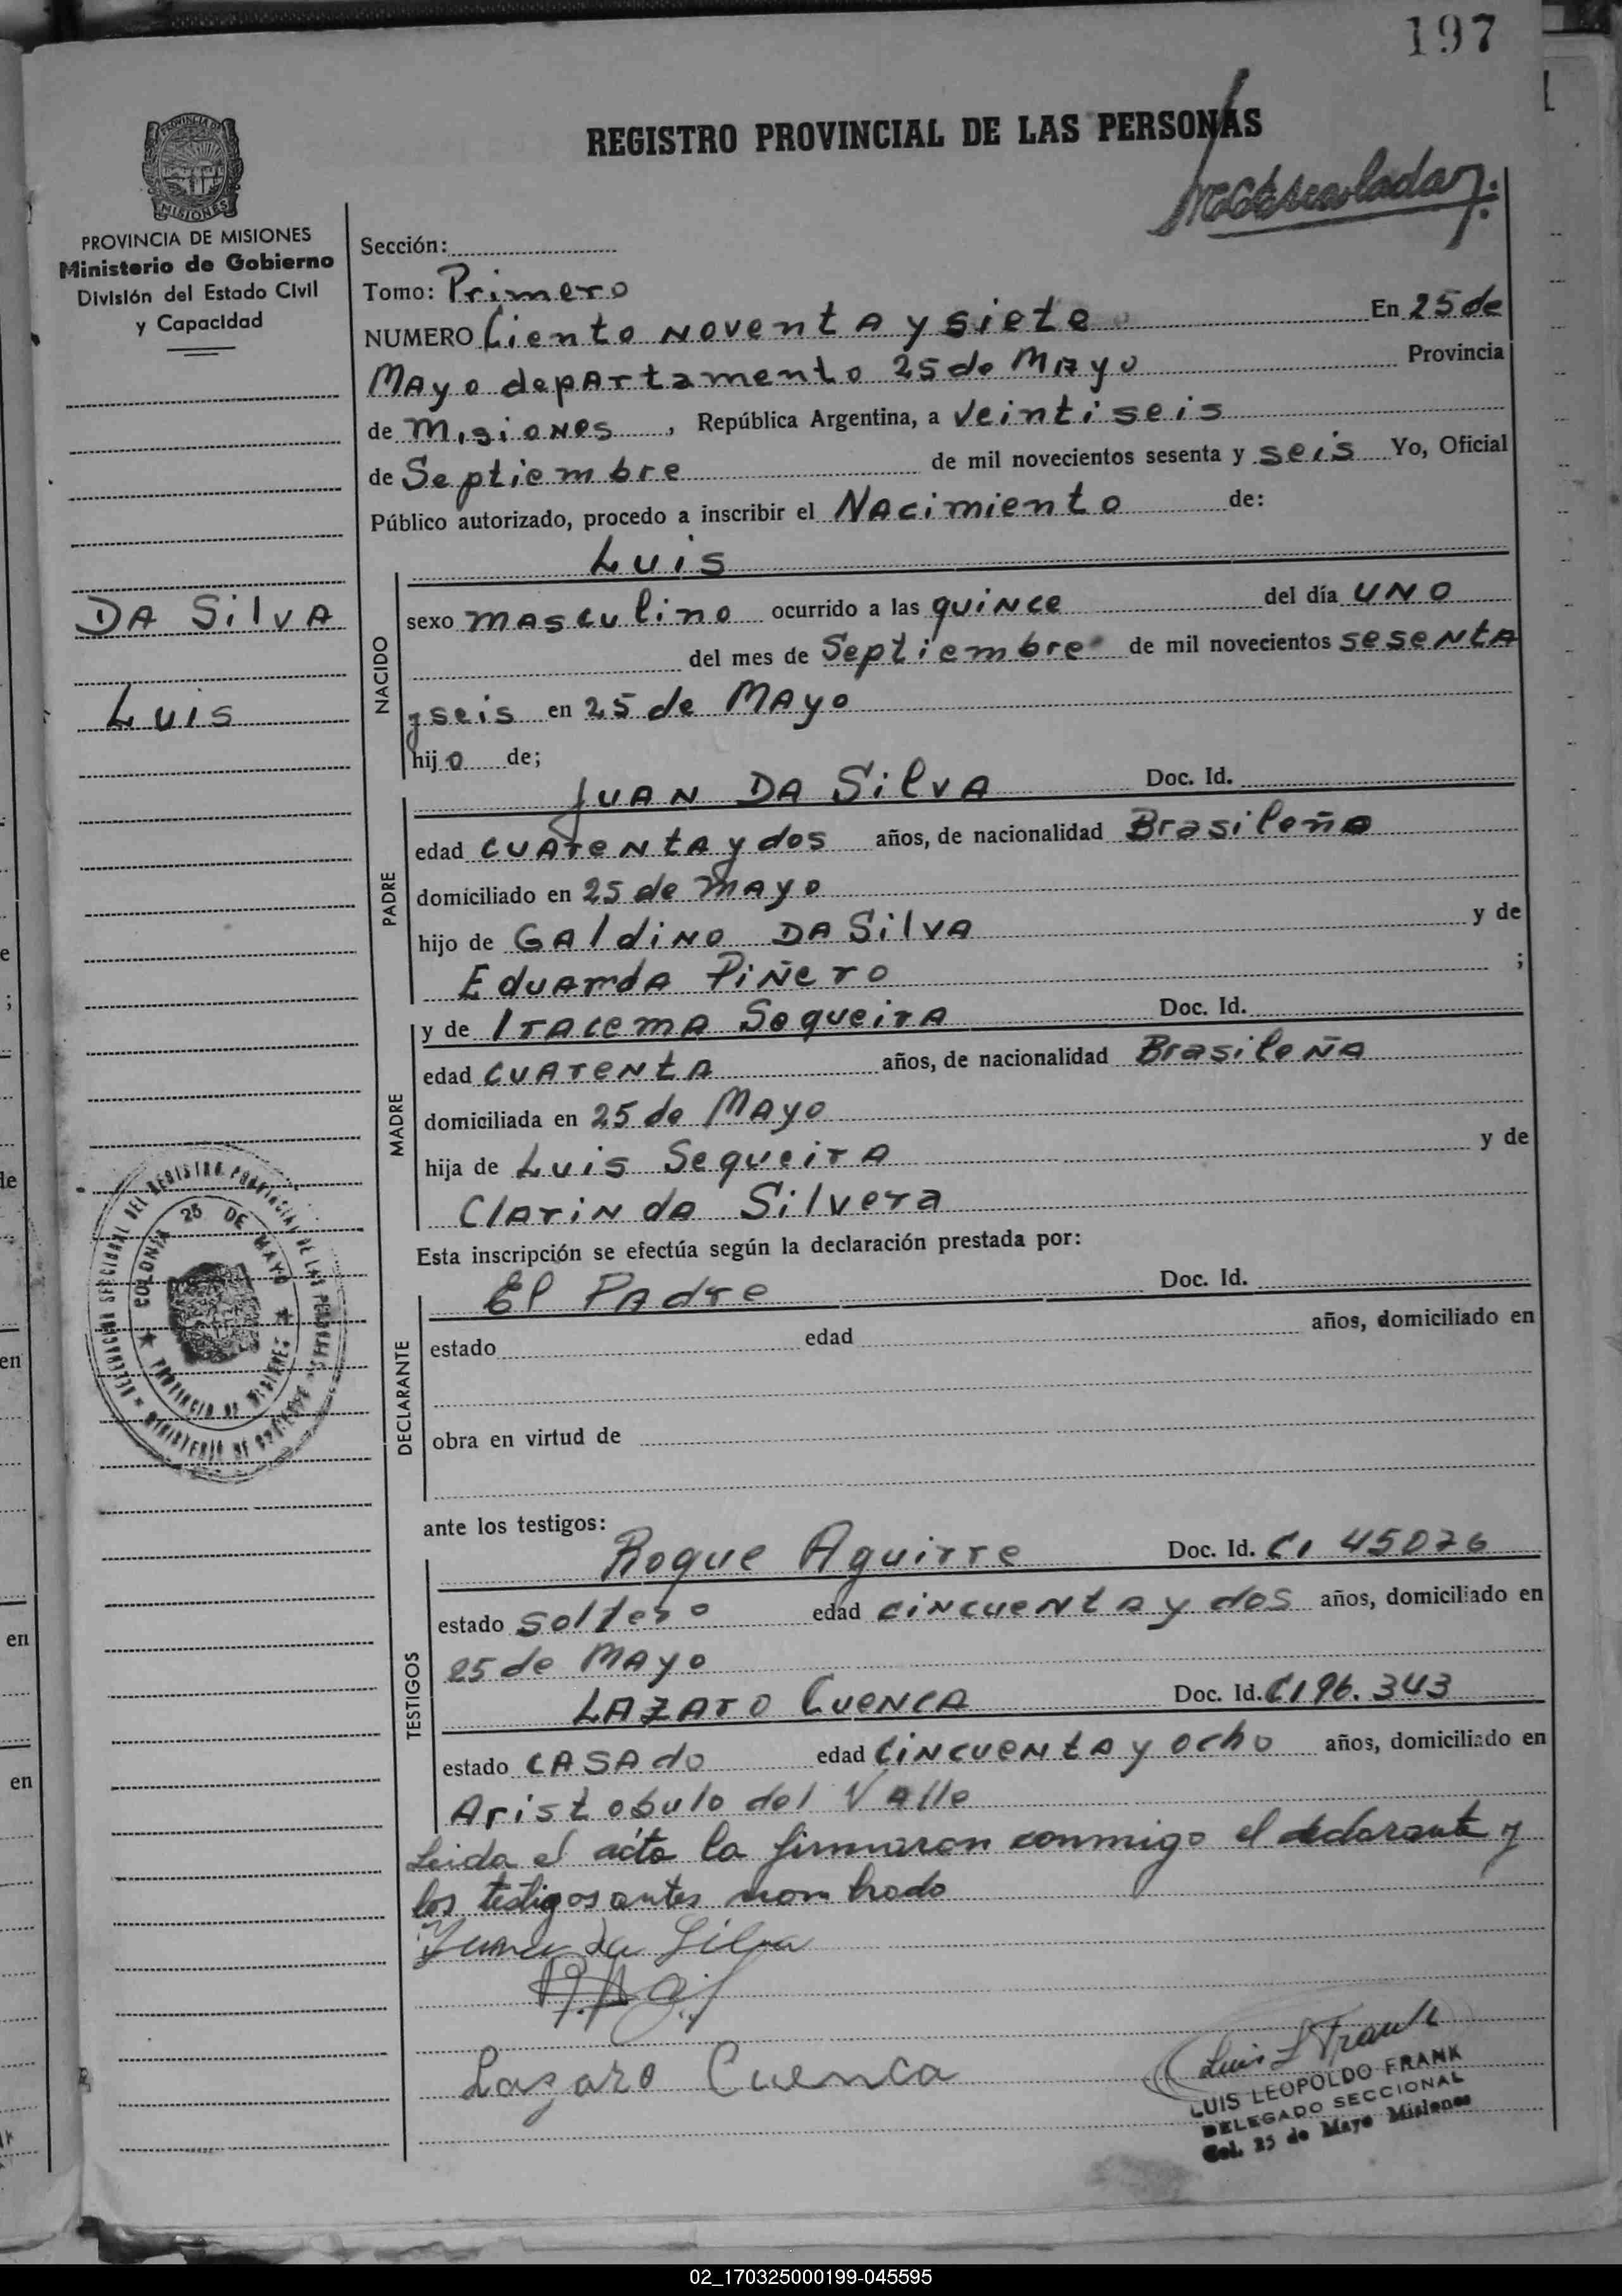 197
REGISTRO PROVINCIAL DE LAS PERSONAS
PROVINCIA DE MISIONES
Ministerio de Gobierno
División del Estado Civil
y Capacidad
Sección:
Tomo: Primero
NUMERO Ciento Noventa y siete En 25 de
Mayo departamento 25 de Mayo Provincia
de Misiones, República Argentina, a veintiseis
de Septiembre de mil novecientos sesenta y seis Yo, Oficial
Público autorizado, procedo a inscribir el Nacimiento de:
Luis
DA Silva
Luis
NACIDO
sexo masculino ocurrido a las quince del día UNO
del mes de Septiembre de mil novecientos sesenta
y seis en 25 de Mayo
hijo de;
PADRE
Juan DA Silva Doc. Id.
edad cuarenta y dos años, de nacionalidad Brasileña
domiciliado en 25 de mayo
hijo de Galdino DA Silva y de
Eduarda Piñero ;
MADRE
y de Iracema Sequeira Doc. Id.
edad cuarenta años, de nacionalidad Brasileña
domiciliada en 25 de Mayo
hija de Luis Sequeira y de
Clarinda Silvera
Esta inscripción se efectúa según la declaración prestada por:
DECLARANTE
El Padre Doc. Id.
estado edad años, domiciliado en
obra en virtud de
COLONIA 25 DE MAYO
PROVINCIA DE MISIONES
ante los testigos:
TESTIGOS
Roque Aguirre Doc. Id. CI 45076
estado soltero edad cincuenta y dos años, domiciliado en
25 de Mayo
Lazaro Cuenca Doc. Id. CI 96.343
estado casado edad cincuenta y ocho años, domiciliado en
Aristobulo del Valle
Leida el acta la firmaron conmigo el declarante y
los testigos antes nombrado
Juan da Silva
Lazaro Cuenca
Luis L Frank
LUIS LEOPOLDO FRANK
DELEGADO SECCIONAL
Col. 25 de Mayo Misiones
02_170325000199-045595